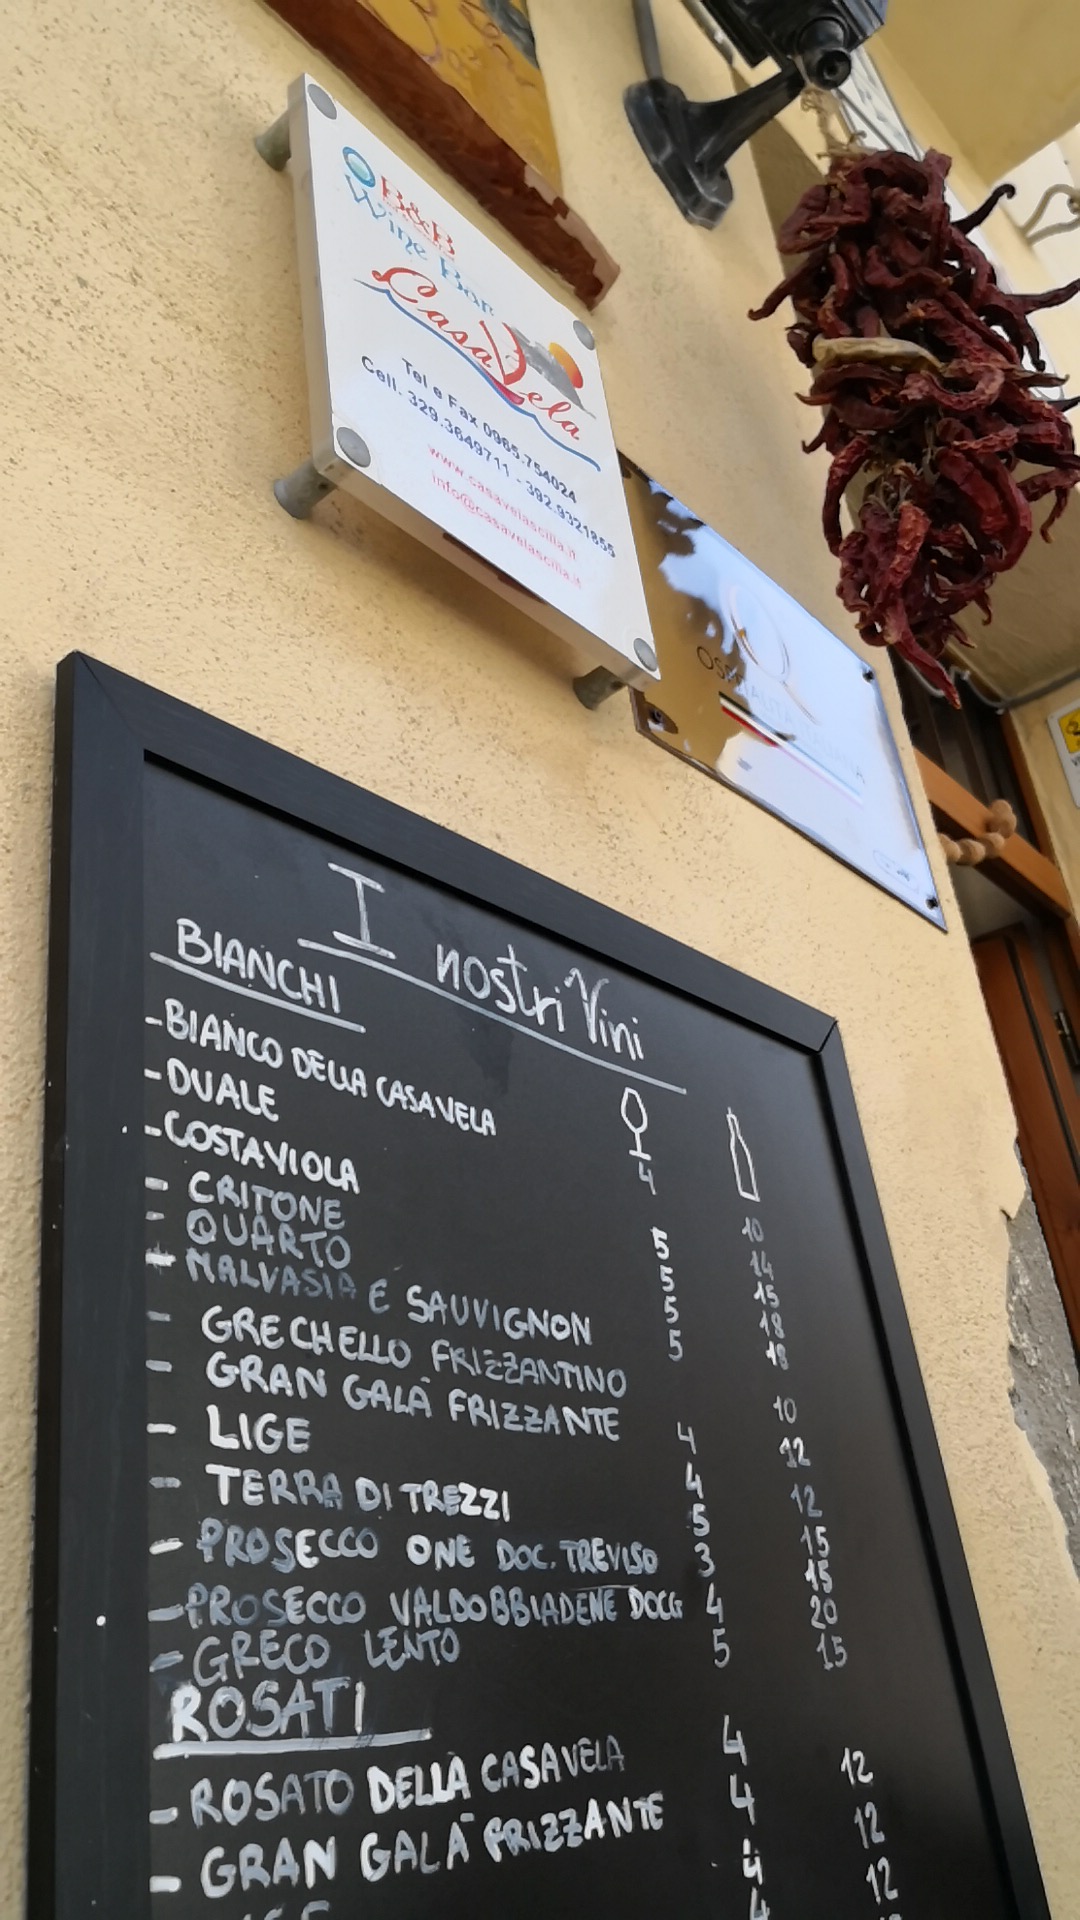 B&B
Wine Bar
CasaVela
Tel e Fax 0965.754024
Cell. 329.3649711 - 392.9321855
www.casavelascilla.it
info@casavelascilla.it
OSPITALITÀ
ITALIANA
I nostri Vini
BIANCHI
-BIANCO DELLA CASAVELA 4 10
-DUALE 5 14
-COSTAVIOLA 5 15
- CRITONE 5 18
- QUARTO 5 18
- MALVASIA E SAUVIGNON
- GRECHELLO FRIZZANTINO 10
- GRAN GALÀ FRIZZANTE 4 12
- LIGE 4 12
- TERRA DI TREZZI 5 15
- PROSECCO ONE DOC. TREVISO 3 15
- PROSECCO VALDOBBIADENE DOCG 4 20
- GRECO LENTO 5 15
ROSATI
- ROSATO DELLA CASAVELA 4 12
- GRAN GALÀ FRIZZANTE 4 12
4 12
4